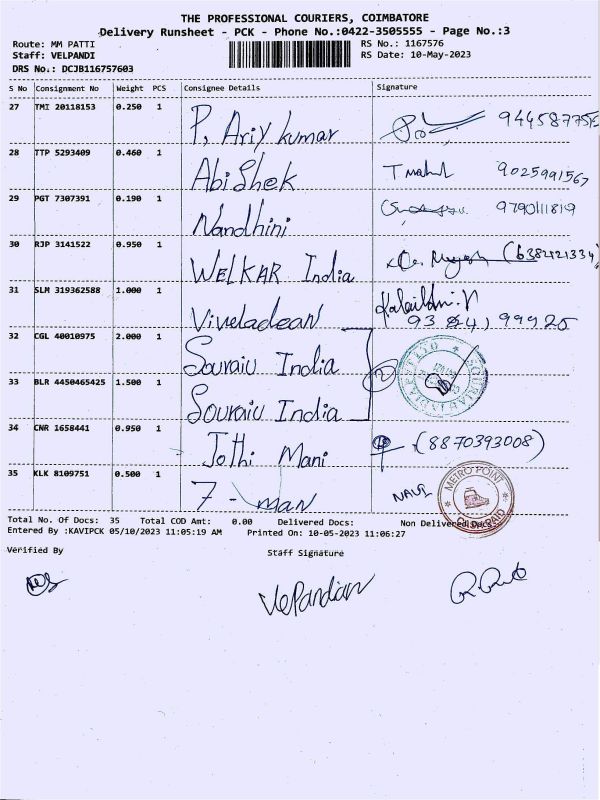 THE PROFESSIONAL COURIERS, COIMBATORE
Delivery Runsheet - PCK - Phone No.:0422-3505555 - Page No.:3
Route: MM PATTI RS No.: 1167576
Staff: VELPANDI RS Date: 10-May-2023
DRS No.: DCJB116757603
S No Consignment No Weight PCS Consignee Details Signature
27 TMI 20118153 0.250 1 P. Ariy kumar
28 TTP 5293409 0.460 1 Abishek 9025991567
29 PGT 7307391 0.190 1 Nandhini 9790111819
30 RJP 3141522 0.950 1 WELKAR India
31 SLM 319362588 1.000 1
32 CGL 40010975 2.000 1 Souraiu India 2
33 BLR 4450465425 1.500 1 Souraiu India
34 CNR 1658441 0.950 1 Jothi Mani (8870393008)
35 KLK 8109751 0.500 1 7 - man METRO POINT
Total No. Of Docs: 35 Total COD Amt: 0.00 Delivered Docs: Non Delivered Docs:
Entered By :KAVIPCK 05/10/2023 11:05:19 AM Printed On: 10-05-2023 11:06:27
Verified By Staff Signature
VelPandian